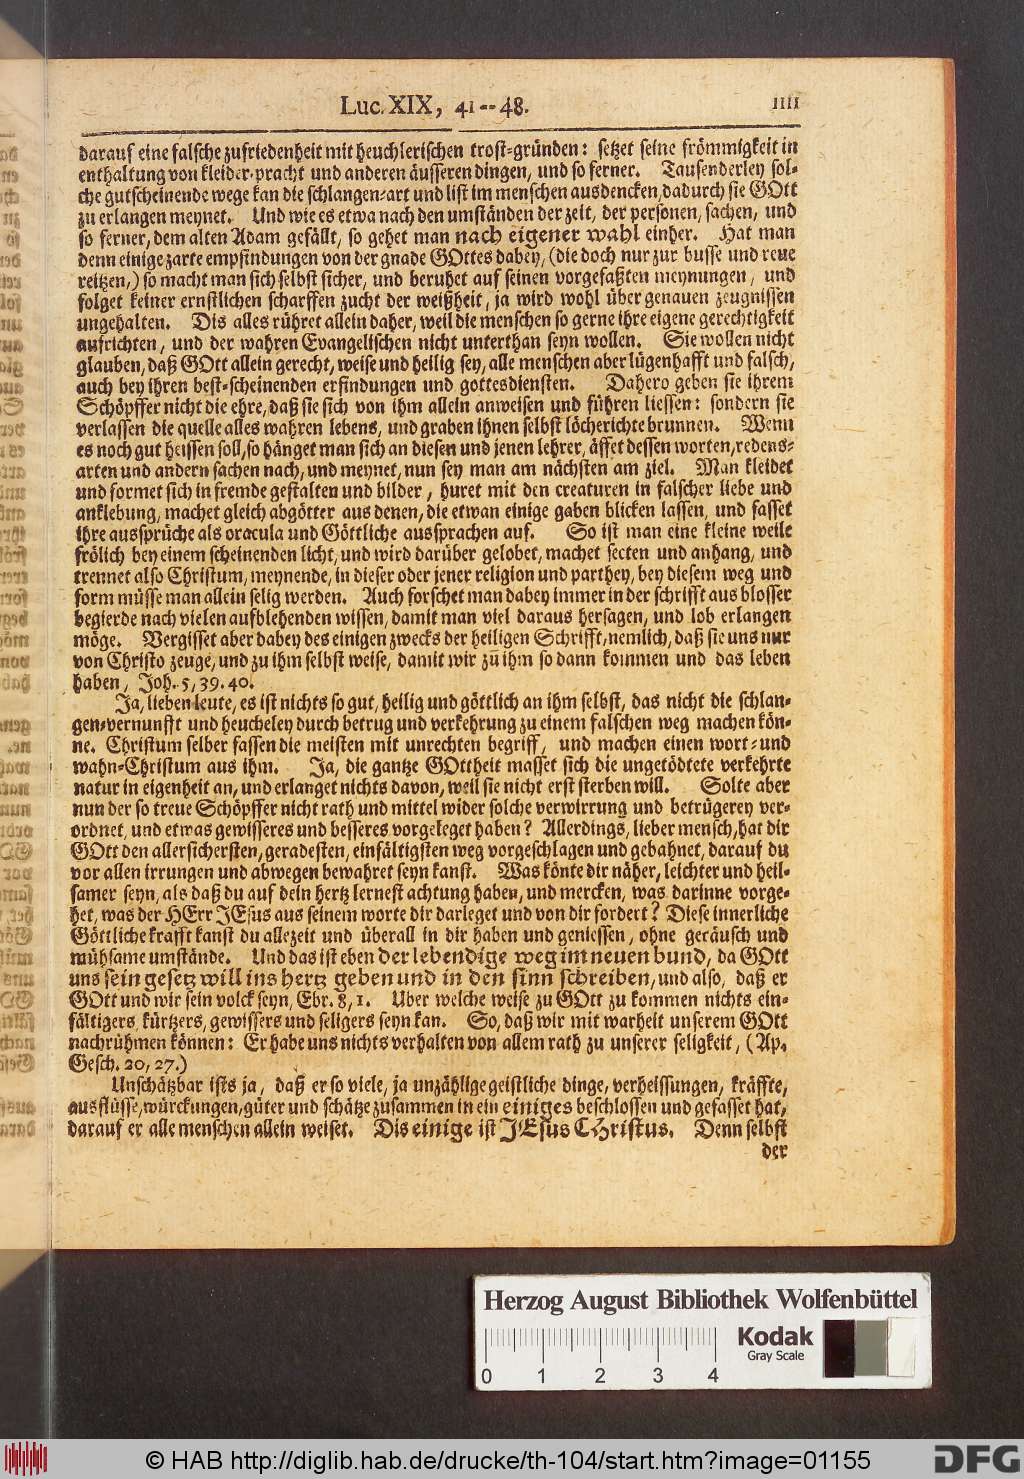 Luc. XIX, 41--48. 1111
darauf eine falsche zufriedenheit mit heuchlerischen trost-gründen: setzet seine frömmigkeit in
enthaltung von kleider-pracht und anderen äusseren dingen, und so ferner. Tausenderley sol-
che gutscheinende wege kan die schlangen-art und list im menschen ausdencken, dadurch sie GOtt
zu erlangen meynet. Und wie es etwa nach den umständen der zeit, der personen, sachen, und
so ferner, dem alten Adam gefällt, so gehet man nach eigener wahl einher. Hat man
denn einige zarte empfindungen von der gnade GOttes dabey, (die doch nur zur busse und reue
reitzen,) so macht man sich selbst sicher, und beruhet auf seinen vorgefaßten meynungen, und
folget keiner ernstlichen scharffen zucht der weißheit, ja wird wohl über genauen zeugnissen
ungehalten. Dis alles rühret allein daher, weil die menschen so gerne ihre eigene gerechtigkeit
aufrichten, und der wahren Evangelischen nicht unterthan seyn wollen. Sie wollen nicht
glauben, daß GOtt allein gerecht, weise und heilig sey, alle menschen aber lügenhafft und falsch,
auch bey ihren best-scheinenden erfindungen und gottesdiensten. Dahero geben sie ihrem
Schöpffer nicht die ehre, daß sie sich von ihm allein anweisen und führen liessen: sondern sie
verlassen die quelle alles wahren lebens, und graben ihnen selbst löcherichte brunnen. Wenn
es noch gut heissen soll, so hänget man sich an diesen und jenen lehrer, äffet dessen worten, redens-
arten und andern sachen nach, und meynet, nun sey man am nächsten am ziel. Man kleidet
und formet sich in fremde gestalten und bilder, huret mit den creaturen in falscher liebe und
anklebung, machet gleich abgötter aus denen, die etwan einige gaben blicken lassen, und fasset
ihre aussprüche als oracula und Göttliche aussprachen auf. So ist man eine kleine weile
frölich bey einem scheinenden licht, und wird darüber gelobet, machet secten und anhang, und
trennet also Christum, meynende, in dieser oder jener religion und parthey, bey diesem weg und
form müsse man allein selig werden. Auch forschet man dabey immer in der schrifft aus blosser
begierde nach vielen aufblehenden wissen, damit man viel daraus hersagen, und lob erlangen
möge. Vergisset aber dabey des einigen zwecks der heiligen Schrifft, nemlich, daß sie uns nur
von Christo zeuge, und zu ihm selbst weise, damit wir zu ihm so dann kommen und das leben
haben, Joh. 5, 39. 40.
Ja, lieben leute, es ist nichts so gut, heilig und göttlich an ihm selbst, das nicht die schlan-
gen-vernunfft und heucheley durch betrug und verkehrung zu einem falschen weg machen kön-
ne. Christum selber fassen die meisten mit unrechten begriff, und machen einen wort- und
wahn-Christum aus ihm. Ja, die gantze GOttheit masset sich die ungetödtete verkehrte
natur in eigenheit an, und erlanget nichts davon, weil sie nicht erst sterben will. Solte aber
nun der so treue Schöpffer nicht rath und mittel wider solche verwirrung und betrügerey ver-
ordnet, und etwas gewisseres und besseres vorgeleget haben? Allerdings, lieber mensch, hat dir
GOtt den allersichersten, geradesten, einfältigsten weg vorgeschlagen und gebahnet, darauf du
vor allen irrungen und abwegen bewahret seyn kanst. Was könte dir näher, leichter und heil-
samer seyn, als daß du auf dein hertz lernest achtung haben, und mercken, was darinne vorge-
het, was der HErr JEsus aus seinem worte dir darleget und von dir fordert? Diese innerliche
Göttliche krafft kanst du allezeit und überall in dir haben und geniessen, ohne geräusch und
mühsame umstände. Und das ist eben der lebendige weg im neuen bund, da GOtt
uns sein gesetz will ins hertz geben und in den sinn schreiben, und also, daß er
GOtt und wir sein volck seyn, Ebr. 8, 1. Uber welche weise zu GOtt zu kommen nichts ein-
fältigers, kürtzers, gewissers und seligers seyn kan. So, daß wir mit warheit unserem GOtt
nachrühmen können: Er habe uns nichts verhalten von allem rath zu unserer seligkeit, (Ap.
Gesch. 20, 27.)
Unschätzbar ists ja, daß er so viele, ja unzählige geistliche dinge, verheissungen, kräffte,
ausflüsse, würckungen, güter und schätze zusammen in ein einiges beschlossen und gefasset hat,
darauf er alle menschen allein weiset. Dis einige ist JEsus CHristus. Denn selbst
der
Herzog August Bibliothek Wolfenbüttel
Kodak
Gray Scale
0 1 2 3 4
© HAB http://diglib.hab.de/drucke/th-104/start.htm?image=01155
DFG